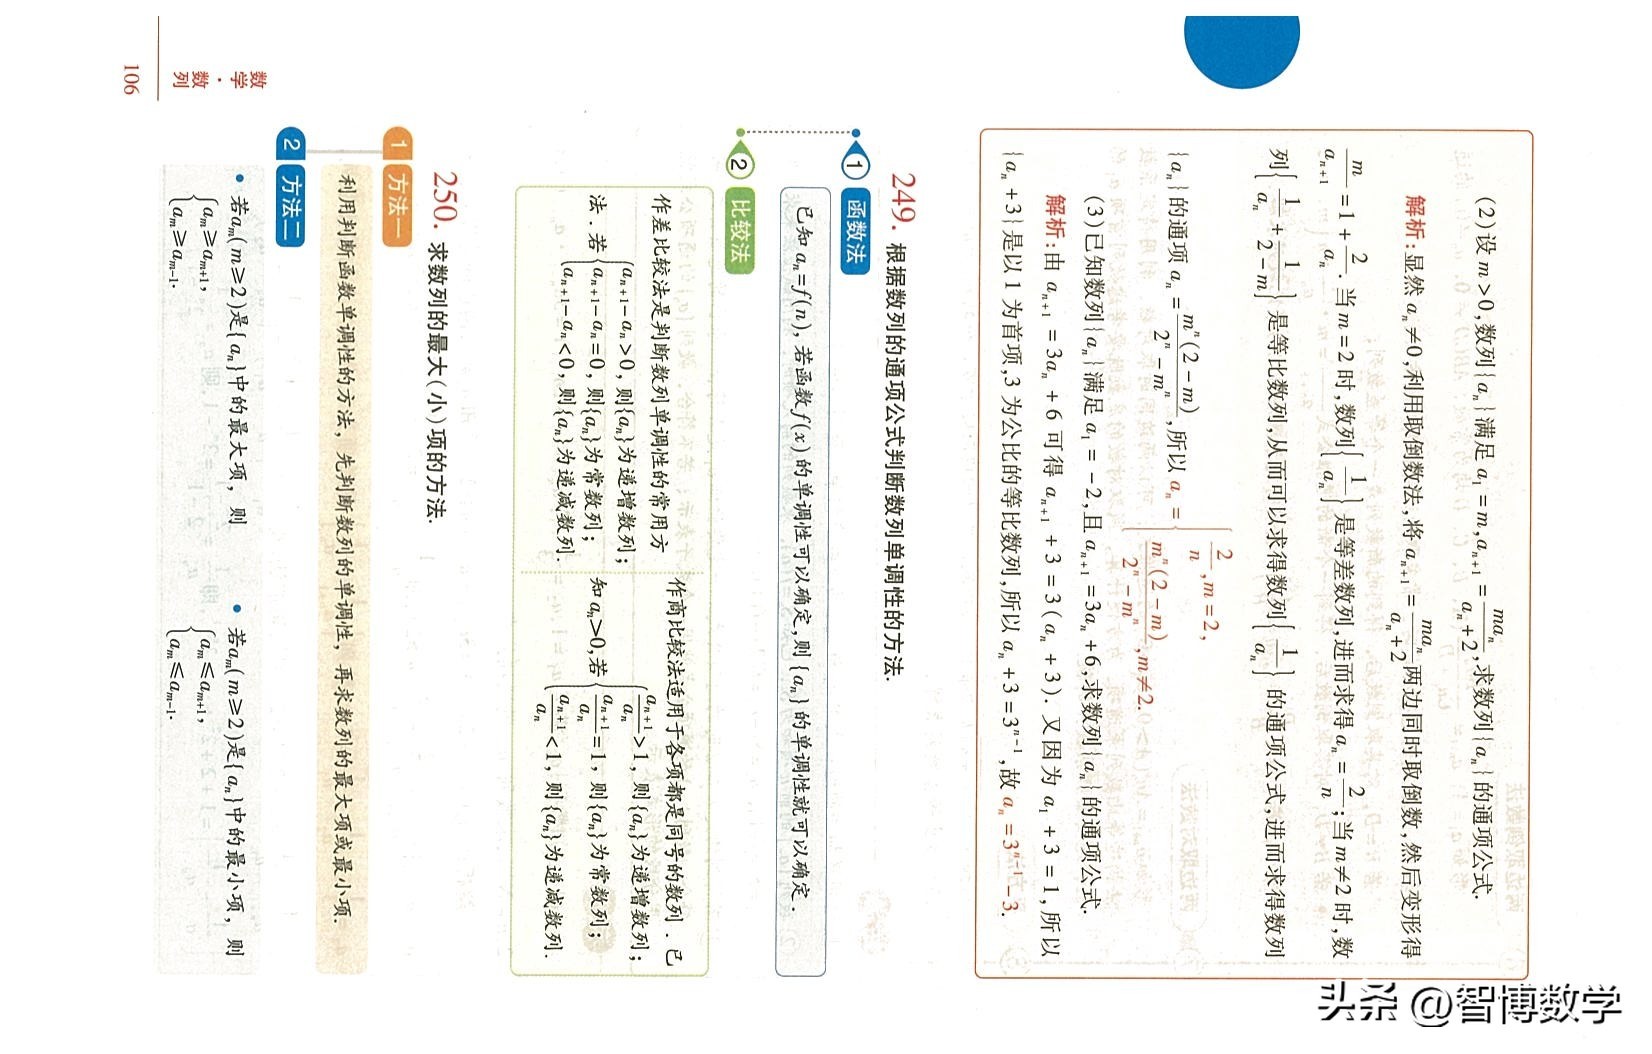 (2)设 m>0,数列{aₙ}满足 a₁=m,aₙ₊₁=maₙ/(aₙ+2),求数列{aₙ}的通项公式.
解析:显然 aₙ≠0,利用取倒数法,将 aₙ₊₁=maₙ/(aₙ+2)两边同时取倒数,然后变形得
m/aₙ₊₁=1+2/aₙ.当 m=2 时,数列{1/aₙ}是等差数列,进而求得 aₙ=2/n;当 m≠2 时,数
列{1/aₙ+1/(2-m)}是等比数列,从而可以求得数列{1/aₙ}的通项公式,进而求得数列
{aₙ}的通项 aₙ=mⁿ(2-m)/(2ⁿ-mⁿ),所以 aₙ={2/n,m=2, mⁿ(2-m)/(2ⁿ-mⁿ),m≠2.
(3)已知数列{aₙ}满足 a₁=-2,且 aₙ₊₁=3aₙ+6,求数列{aₙ}的通项公式.
解析:由 aₙ₊₁=3aₙ+6 可得 aₙ₊₁+3=3(aₙ+3). 又因为 a₁+3=1,所以
{aₙ+3}是以 1 为首项,3 为公比的等比数列,所以 aₙ+3=3ⁿ⁻¹,故 aₙ=3ⁿ⁻¹-3.
249. 根据数列的通项公式判断数列单调性的方法.
1 函数法
已知 aₙ=f(n),若函数f(x)的单调性可以确定,则{aₙ}的单调性就可以确定.
2 比较法
作差比较法是判断数列单调性的常用方
法.若{aₙ₊₁-aₙ>0,则{aₙ}为递增数列;
aₙ₊₁-aₙ=0,则{aₙ}为常数列;
aₙ₊₁-aₙ<0,则{aₙ}为递减数列.
作商比较法适用于各项都是同号的数列.已
知 aₙ>0,若{aₙ₊₁/aₙ>1,则{aₙ}为递增数列;
aₙ₊₁/aₙ=1,则{aₙ}为常数列;
aₙ₊₁/aₙ<1,则{aₙ}为递减数列.
250. 求数列的最大(小)项的方法.
1 方法一
利用判断函数单调性的方法,先判断数列的单调性,再求数列的最大项或最小项.
2 方法二
• 若aₘ(m≥2)是{aₙ}中的最大项,则
{aₘ≥aₘ₊₁,
aₘ≥aₘ₋₁.
• 若aₘ(m≥2)是{aₙ}中的最小项,则
{aₘ≤aₘ₊₁,
aₘ≤aₘ₋₁.
数学·数列
106
头条 @智博数学